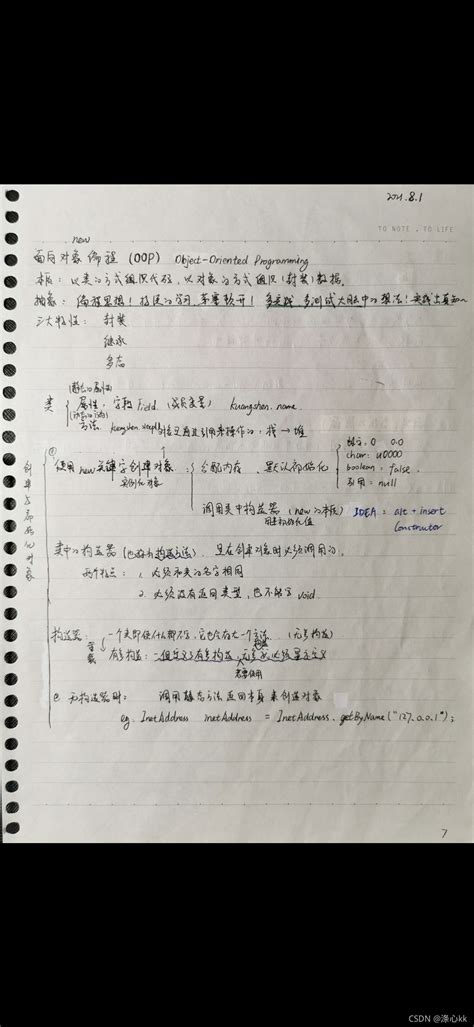 2021.8.1
TO NOTE , TO LIFE
new
面向对象编程 (OOP) Object-Oriented Programming
本质: 以类的方式组织代码, 以对象的方式组织(封装)数据.
抽象: 编程思想! 持续的学习, 茅塞顿开! 多实践, 多测试大脑中的想法! 实践出真知~
三大特性: 封装
继承
多态
(静态的属性)
类 属性: 字段 Field (成员变量) kuangshen.name
(动态的行为)
方法. kuangshen.sleep() 对象是通过引用来操作的, 栈→堆
创建与初始化对象
① 使用 new 关键字创建对象: 分配内存, 默认初始化
实例化对象
数字: 0 0.0
char: u0000
boolean: false
引用: null
调用类中构造器 (new的本质) IDEA = alt + insert
用来初始化值 Constructor
类中的构造器 (也称为构造方法), 是在创建对象时必须调用的.
两个特点: 1. 必须和类的名字相同
2. 必须没有返回类型, 也不能写 void
构造器: 一个类即使什么都不写, 它也会存在一个方法. (无参构造)
构造
重载
有参构造: 一旦定义了有参构造, 无参就必须显示定义
若要使用
② 无构造器时: 调用静态方法返回本身来创建对象
eg. InetAddress inetAddress = InetAddress.getByName("127.0.0.1");
7
CSDN @涤心kk